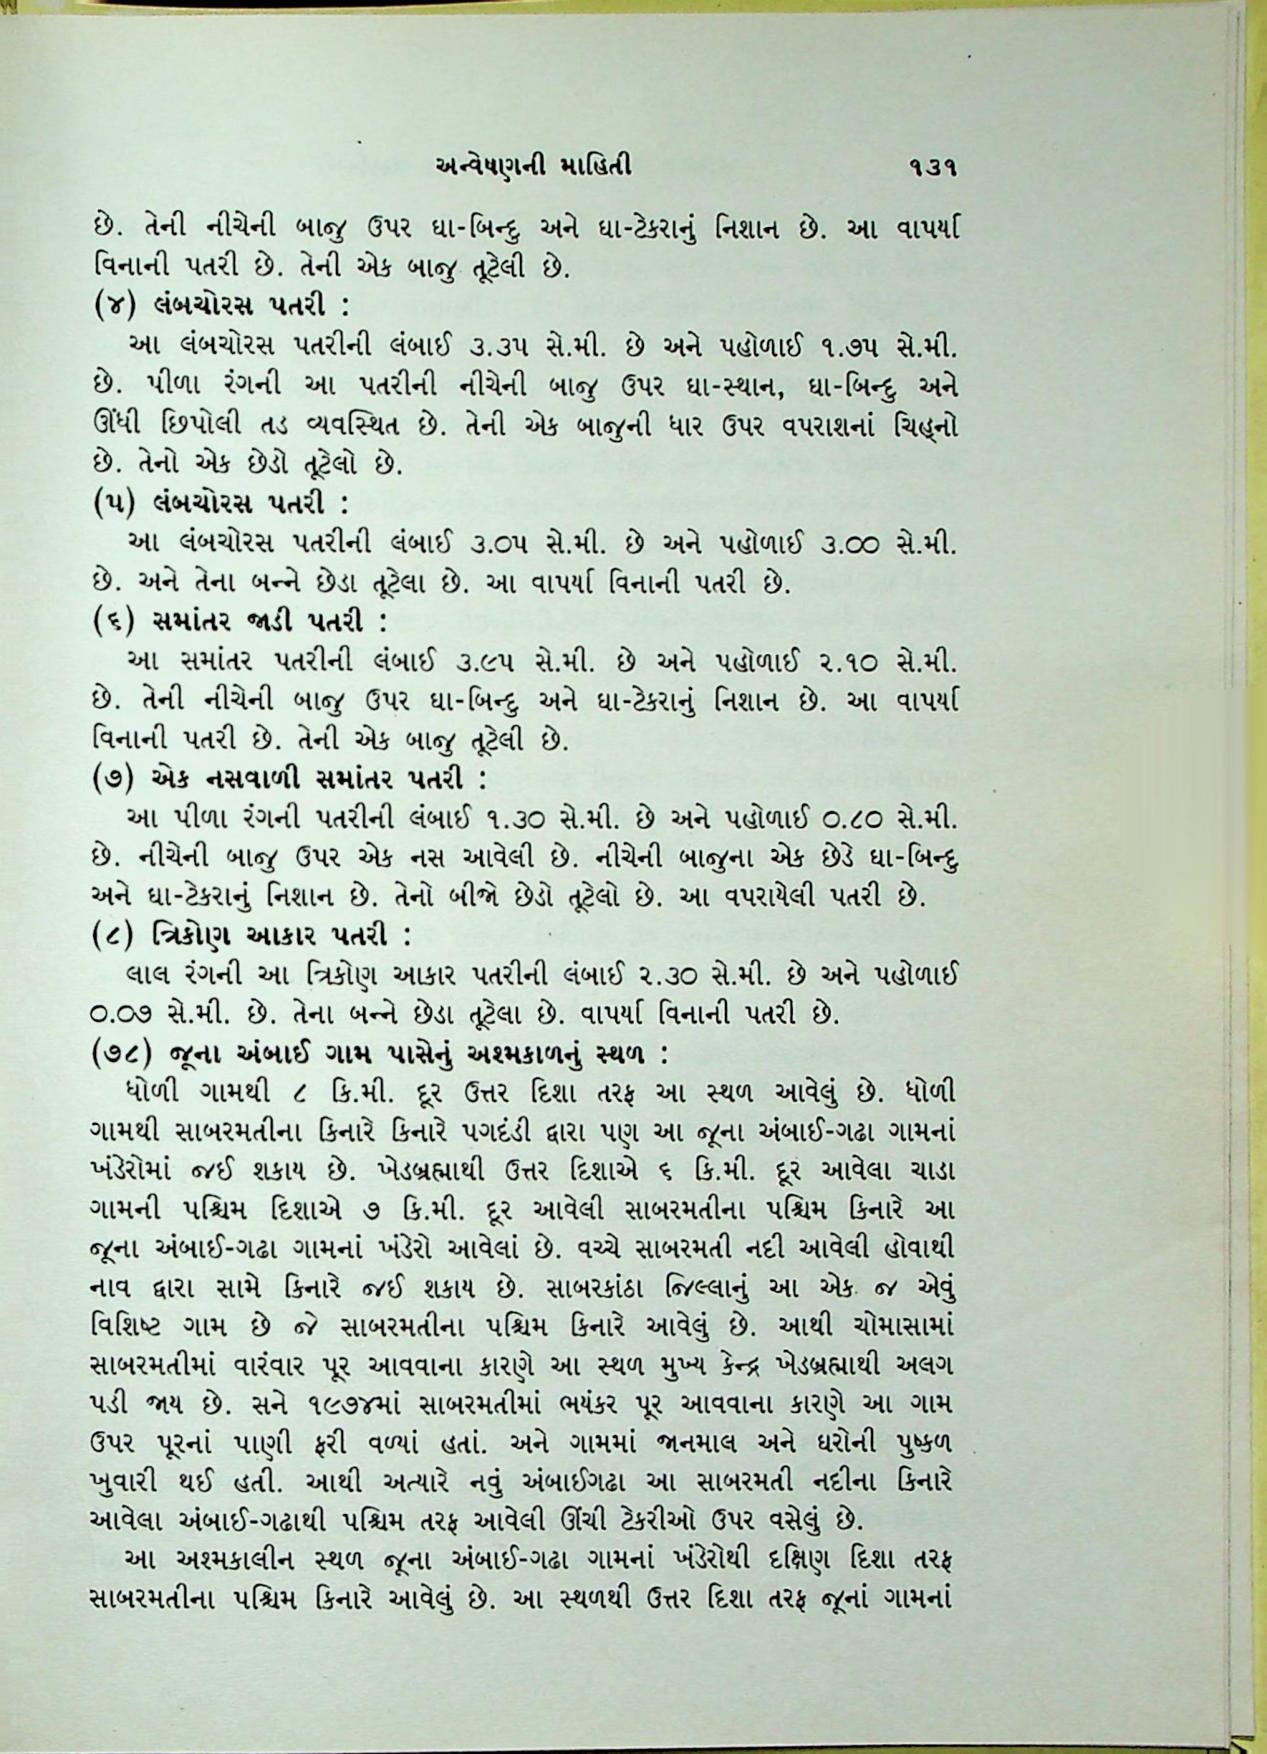 અન્વેષણની માહિતી ૧૩૧
છે. તેની નીચેની બાજુ ઉપર ઘા-બિન્દુ અને ઘા-ટેકરાનું નિશાન છે. આ વાપર્યા
વિનાની પતરી છે. તેની એક બાજુ તૂટેલી છે.
(૪) લંબચોરસ પતરી :
આ લંબચોરસ પતરીની લંબાઈ ૩.૩૫ સે.મી. છે અને પહોળાઈ ૧.૭૫ સે.મી.
છે. પીળા રંગની આ પતરીની નીચેની બાજુ ઉપર ઘા-સ્થાન, ઘા-બિન્દુ અને
ઊંધી છિપોલી તડ વ્યવસ્થિત છે. તેની એક બાજુની ધાર ઉપર વપરાશનાં ચિહ્નો
છે. તેનો એક છેડો તૂટેલો છે.
(૫) લંબચોરસ પતરી :
આ લંબચોરસ પતરીની લંબાઈ ૩.૦૫ સે.મી. છે અને પહોળાઈ ૩.૦૦ સે.મી.
છે. અને તેના બન્ને છેડા તૂટેલા છે. આ વાપર્યા વિનાની પતરી છે.
(૬) સમાંતર જાડી પતરી :
આ સમાંતર પતરીની લંબાઈ ૩.૯૫ સે.મી. છે અને પહોળાઈ ૨.૧૦ સે.મી.
છે. તેની નીચેની બાજુ ઉપર ઘા-બિન્દુ અને ઘા-ટેકરાનું નિશાન છે. આ વાપર્યા
વિનાની પતરી છે. તેની એક બાજુ તૂટેલી છે.
(૭) એક નસવાળી સમાંતર પતરી :
આ પીળા રંગની પતરીની લંબાઈ ૧.૩૦ સે.મી. છે અને પહોળાઈ ૦.૮૦ સે.મી.
છે. નીચેની બાજુ ઉપર એક નસ આવેલી છે. નીચેની બાજુના એક છેડે ઘા-બિન્દુ
અને ઘા-ટેકરાનું નિશાન છે. તેનો બીજો છેડો તૂટેલો છે. આ વપરાયેલી પતરી છે.
(૮) ત્રિકોણ આકાર પતરી :
લાલ રંગની આ ત્રિકોણ આકાર પતરીની લંબાઈ ૨.૩૦ સે.મી. છે અને પહોળાઈ
૦.૦૭ સે.મી. છે. તેના બન્ને છેડા તૂટેલા છે. વાપર્યા વિનાની પતરી છે.
(૭૮) જૂના અંબાઈ ગામ પાસેનું અશ્મકાળનું સ્થળ :
ધોળી ગામથી ૮ કિ.મી. દૂર ઉત્તર દિશા તરફ આ સ્થળ આવેલું છે. ધોળી
ગામથી સાબરમતીના કિનારે કિનારે પગદંડી દ્વારા પણ આ જૂના અંબાઈ-ગઢા ગામનાં
ખંડેરોમાં જઈ શકાય છે. ખેડબ્રહ્માથી ઉત્તર દિશાએ ૬ કિ.મી. દૂર આવેલા ચાડા
ગામની પશ્ચિમ દિશાએ ૭ કિ.મી. દૂર આવેલી સાબરમતીના પશ્ચિમ કિનારે આ
જૂના અંબાઈ-ગઢા ગામનાં ખંડેરો આવેલાં છે. વચ્ચે સાબરમતી નદી આવેલી હોવાથી
નાવ દ્વારા સામે કિનારે જઈ શકાય છે. સાબરકાંઠા જિલ્લાનું આ એક જ એવું
વિશિષ્ટ ગામ છે જે સાબરમતીના પશ્ચિમ કિનારે આવેલું છે. આથી ચોમાસામાં
સાબરમતીમાં વારંવાર પૂર આવવાના કારણે આ સ્થળ મુખ્ય કેન્દ્ર ખેડબ્રહ્માથી અલગ
પડી જાય છે. સને ૧૯૭૪માં સાબરમતીમાં ભયંકર પૂર આવવાના કારણે આ ગામ
ઉપર પૂરનાં પાણી ફરી વળ્યાં હતાં. અને ગામમાં જાનમાલ અને ઘરોની પુષ્કળ
ખુવારી થઈ હતી. આથી અત્યારે નવું અંબાઈગઢા આ સાબરમતી નદીના કિનારે
આવેલા અંબાઈ-ગઢાથી પશ્ચિમ તરફ આવેલી ઊંચી ટેકરીઓ ઉપર વસેલું છે.
આ અશ્મકાલીન સ્થળ જૂના અંબાઈ-ગઢા ગામનાં ખંડેરોથી દક્ષિણ દિશા તરફ
સાબરમતીના પશ્ચિમ કિનારે આવેલું છે. આ સ્થળથી ઉત્તર દિશા તરફ જૂનાં ગામનાં